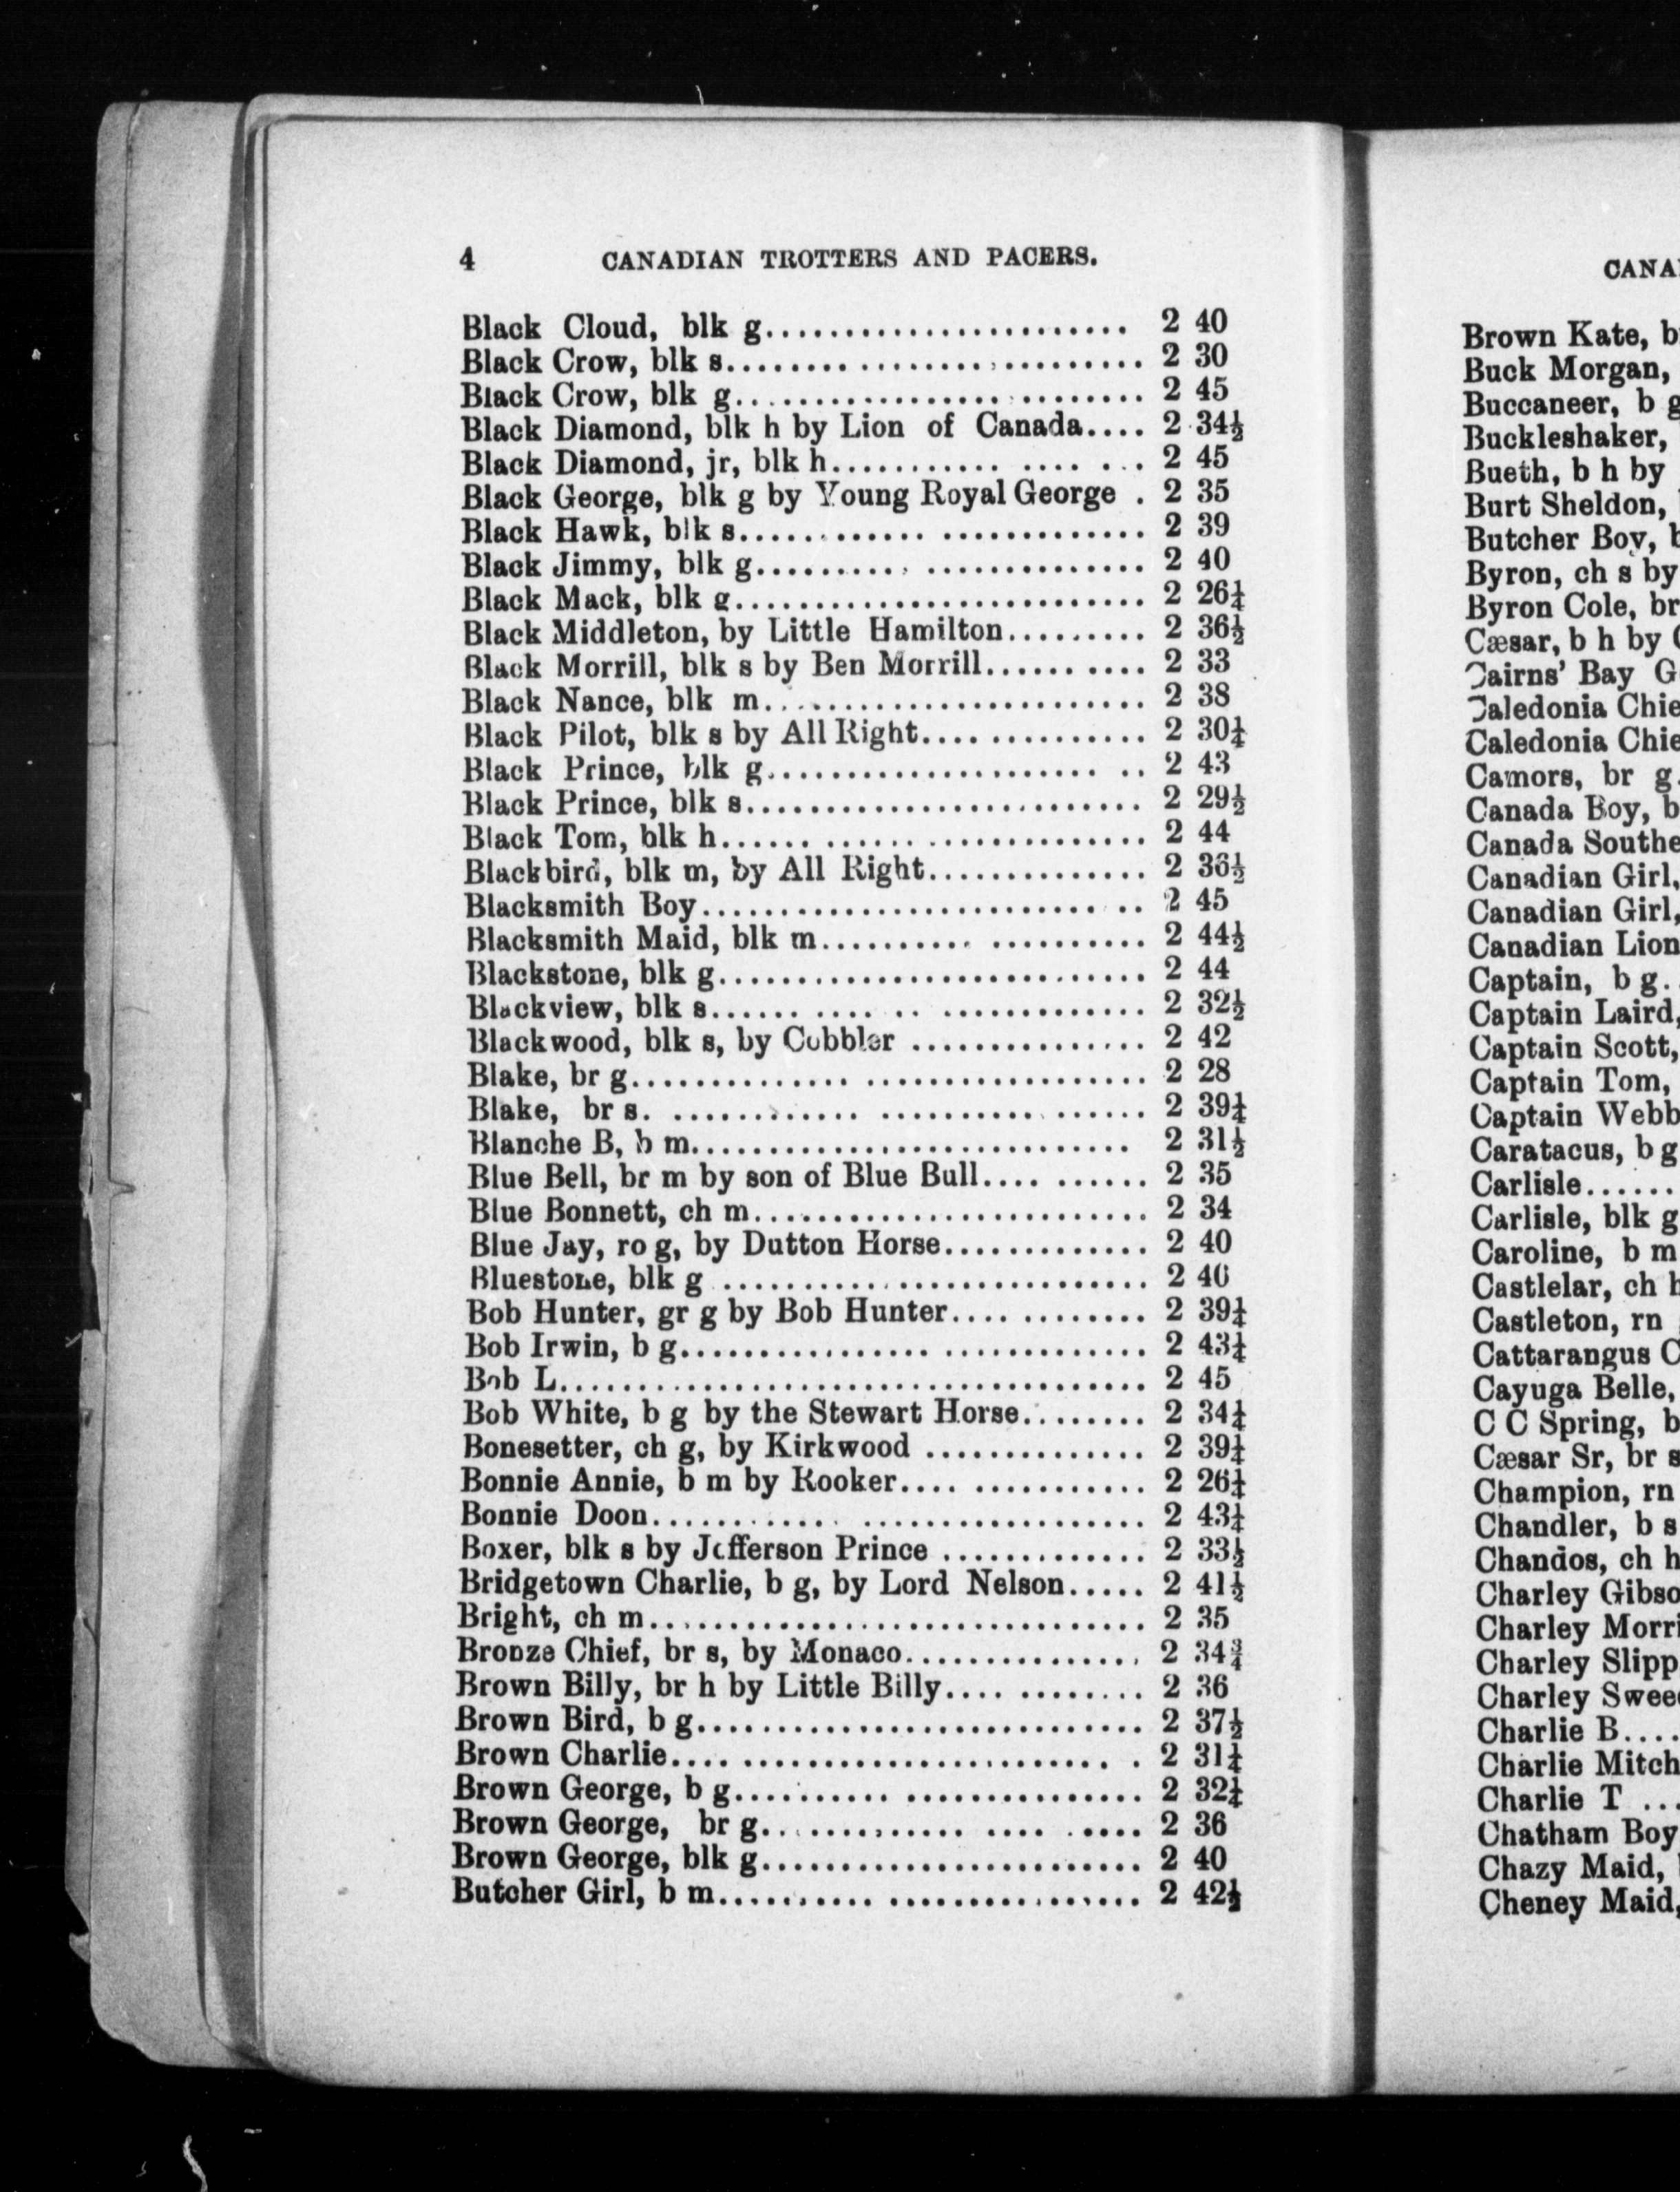 4 CANADIAN TROTTERS AND PACERS.
Black Cloud, blk g....................... 2 40
Black Crow, blk s........................... 2 30
Black Crow, blk g.......................... 2 45
Black Diamond, blk h by Lion of Canada.... 2 34½
Black Diamond, jr, blk h........... .... ... 2 45
Black George, blk g by Young Royal George . 2 35
Black Hawk, blk s............ ............. 2 39
Black Jimmy, blk g.......... .............. 2 40
Black Mack, blk g.......................... 2 26¼
Black Middleton, by Little Hamilton......... 2 36½
Black Morrill, blk s by Ben Morrill.......... 2 33
Black Nance, blk m........................ 2 38
Black Pilot, blk s by All Right.............. 2 30¼
Black Prince, blk g..................... .. 2 43
Black Prince, blk s......................... 2 29½
Black Tom, blk h...... ....... .............. 2 44
Blackbird, blk m, by All Right.............. 2 36½
Blacksmith Boy......................... .. 2 45
Blacksmith Maid, blk m.......... .......... 2 44½
Blackstone, blk g........................... 2 44
Blackview, blk s...... .... .. ............. 2 32½
Blackwood, blk s, by Cobbler ............... 2 42
Blake, br g.............. .................. 2 28
Blake, br s. ............ ................. 2 39¼
Blanche B, b m............................ 2 31½
Blue Bell, br m by son of Blue Bull.... ...... 2 35
Blue Bonnett, ch m......................... 2 34
Blue Jay, ro g, by Dutton Horse............. 2 40
Bluestone, blk g ........................... 2 40
Bob Hunter, gr g by Bob Hunter.... ........ 2 39¼
Bob Irwin, b g................ ............. 2 43¼
Bob L..................................... 2 45
Bob White, b g by the Stewart Horse........ 2 34¼
Bonesetter, ch g, by Kirkwood .............. 2 39¼
Bonnie Annie, b m by Rooker.... ........... 2 26¼
Bonnie Doon............ .................. 2 43¼
Boxer, blk s by Jefferson Prince ............. 2 33½
Bridgetown Charlie, b g, by Lord Nelson..... 2 41½
Bright, ch m............................... 2 35
Bronze Chief, br s, by Monaco............... 2 34¾
Brown Billy, br h by Little Billy.... ........ 2 36
Brown Bird, b g............................ 2 37½
Brown Charlie.... ........................ . 2 31¼
Brown George, b g.......... ............... 2 32¼
Brown George, br g............. .... ..... 2 36
Brown George, blk g........................ 2 40
Butcher Girl, b m.......... ................ 2 42½
CANA
Brown Kate, b
Buck Morgan,
Buccaneer, b g
Buckleshaker,
Bueth, b h by
Burt Sheldon,
Butcher Boy, b
Byron, ch s by
Byron Cole, br
Cæsar, b h by
Cairns' Bay G
Caledonia Chie
Caledonia Chie
Camors, br g.
Canada Boy, b
Canada Southe
Canadian Girl,
Canadian Girl,
Canadian Lion
Captain, b g..
Captain Laird,
Captain Scott,
Captain Tom,
Captain Webb
Caratacus, b g
Carlisle......
Carlisle, blk g
Caroline, b m
Castlelar, ch h
Castleton, rn
Cattarangus C
Cayuga Belle,
C C Spring, b
Cæsar Sr, br s
Champion, rn
Chandler, b s
Chandos, ch h
Charley Gibso
Charley Morri
Charley Slipp
Charley Swee
Charlie B....
Charlie Mitch
Charlie T ...
Chatham Boy
Chazy Maid,
Cheney Maid,